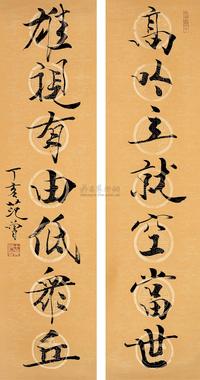 高吟立就空當世
雄視有由低衆丘
丁亥范曾